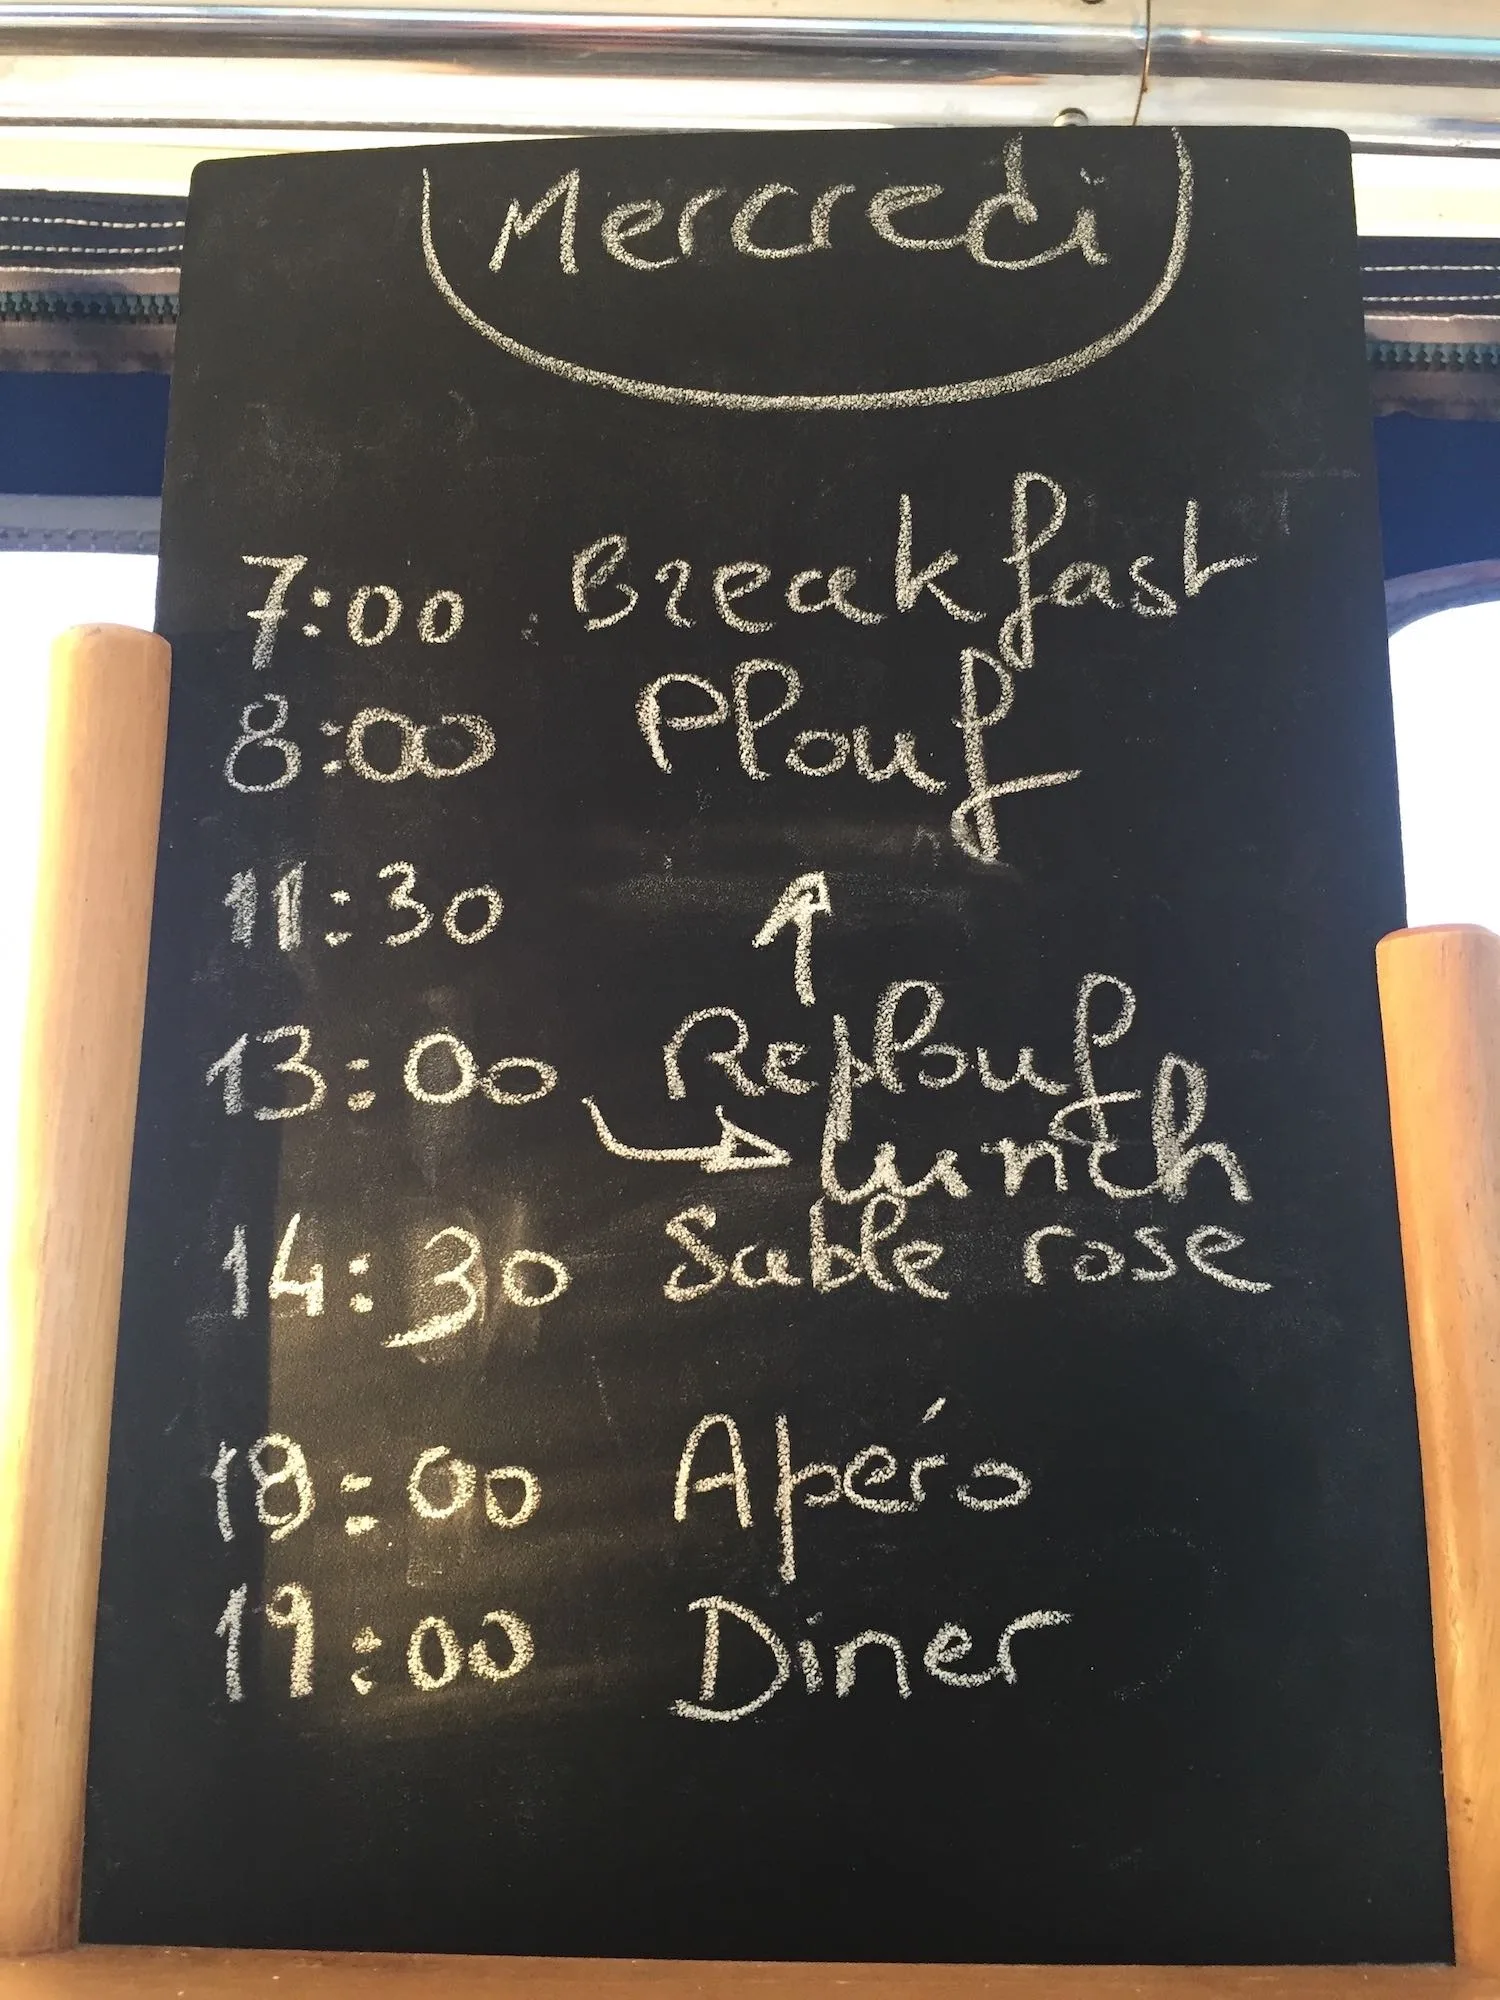 Mercredi
7:00 Breakfast
8:00 Plouf
11:30 ↑
13:00 Replouf
→ lunch
14:30 Sable rose
18:00 Apéro
19:00 Diner